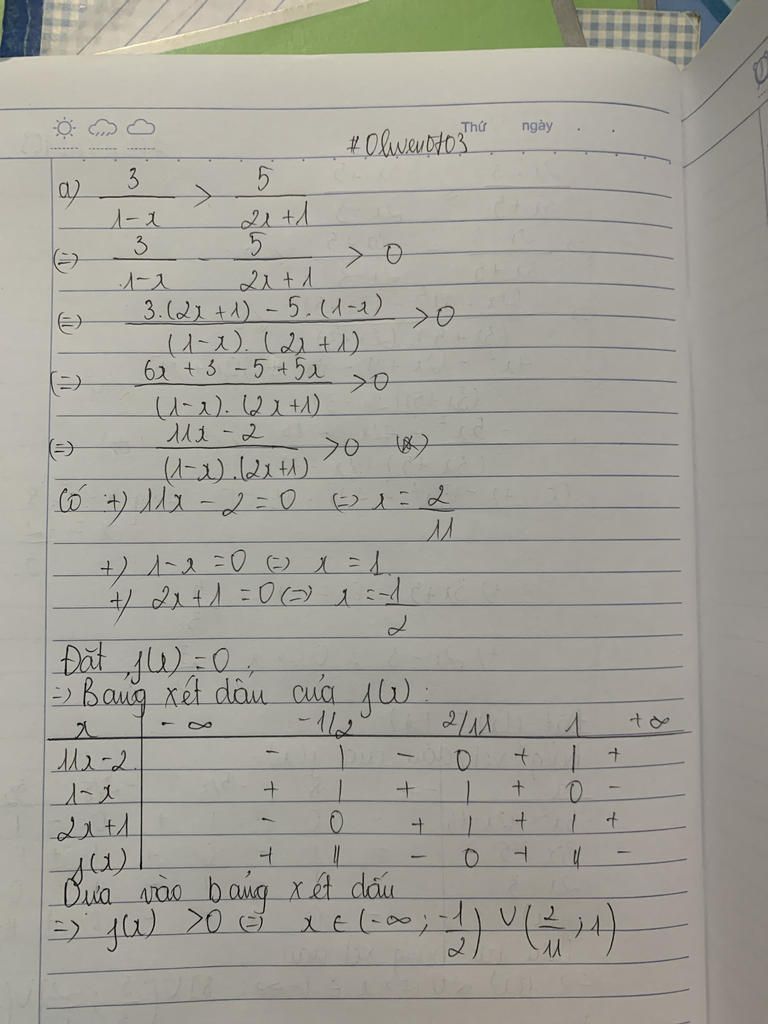 Thứ ngày . .
#Oliver0703
a) 3/(1-x) > 5/(2x+1)
(=) 3/(1-x) - 5/(2x+1) > 0
(=) (3.(2x+1) - 5.(1-x))/((1-x).(2x+1)) > 0
(=) (6x + 3 - 5 + 5x)/((1-x).(2x+1)) > 0
(=) (11x - 2)/((1-x).(2x+1)) > 0 (*)
Có +) 11x - 2 = 0 (=) x = 2/11
+) 1-x = 0 (=) x = 1
+) 2x+1 = 0 (=) x = -1/2
Đặt f(x) = 0.
=> Bảng xét dấu của f(x):
x -∞ -1/2 2/11 1 +∞
11x-2 - | - 0 + | +
1-x + | + | + 0 -
2x+1 - 0 + | + | +
f(x) + || - 0 + || -
Dựa vào bảng xét dấu
=> f(x) > 0 (=) x ∈ (-∞; -1/2) ∪ (2/11; 1)